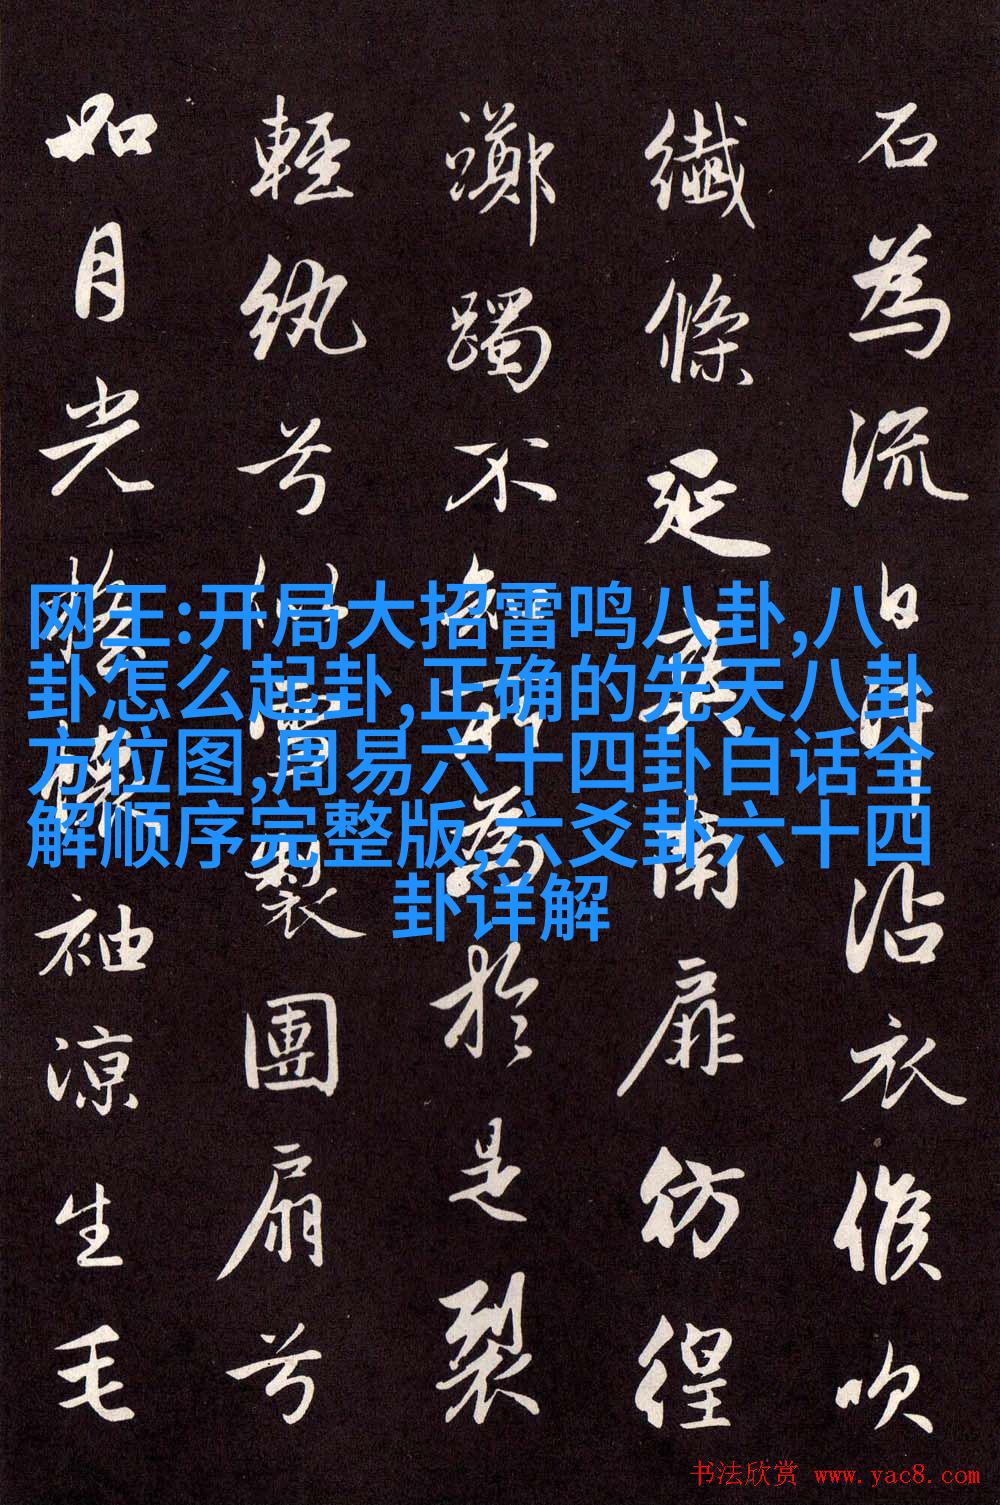 网王:开局大招雷鸣八卦,八
卦怎么起卦,正确的先天八卦
方位图,周易六十四卦白话全
解顺序完整版,六爻卦六十四
卦详解
石為流汗沾衣候吹
纖條延爽南扉彷徨
躑躅不知所為於是裂
輕紈兮雪製團扇兮
如月光懷袖涼生毛
书法欣赏 www.yac8.com